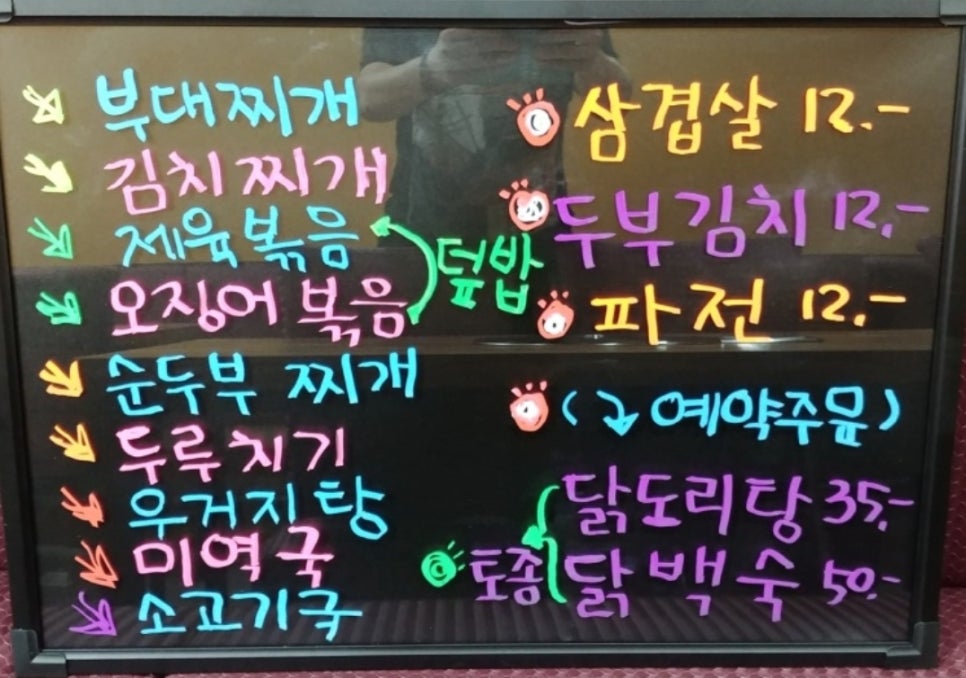 부대찌개
김치찌개
제육볶음
오징어 볶음
덮밥
순두부 찌개
두루치기
우거지탕
미역국
소고기국
삼겹살 12.-
두부김치 12.-
파전 12.-
(↴ 예약주문)
닭도리탕 35.-
토종 닭백숙 50.-